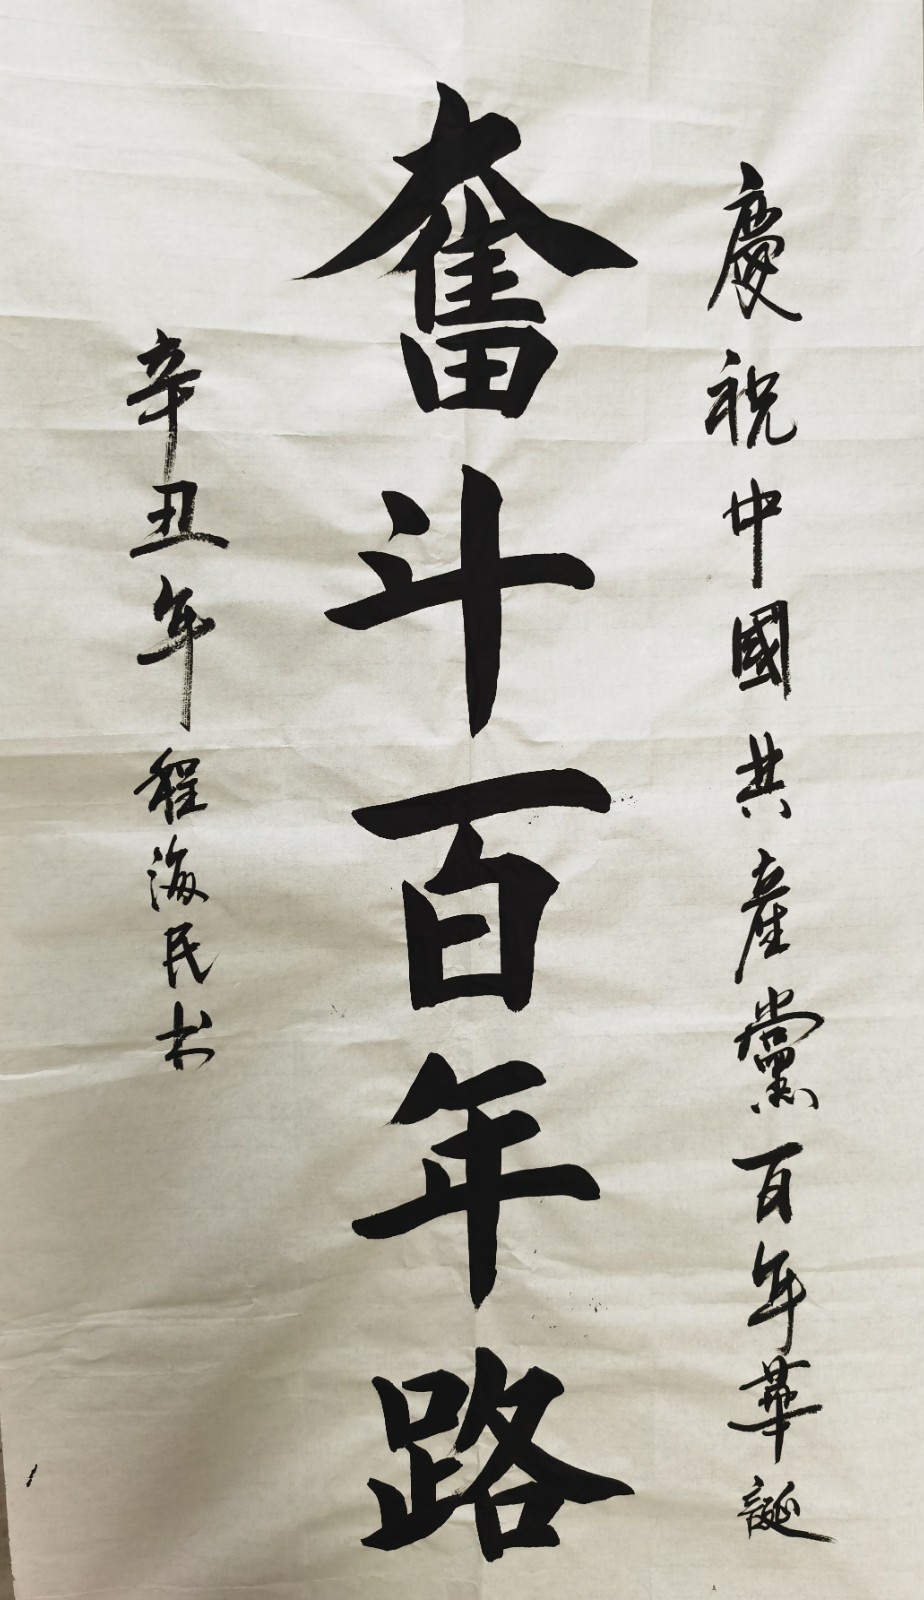 慶祝中國共產黨百年華誕
奮斗百年路
辛丑年程海民书